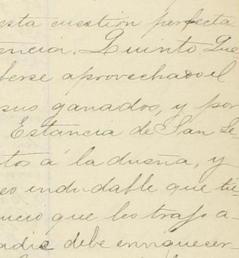 esta cuestión perfecta
encia. Quinto Que
berse aprovechado el
sus ganados, y por
Estancia de San Se
tos á la dueña, y
eo indudable que tu
nero que los trajo a
adie debe enriquecer